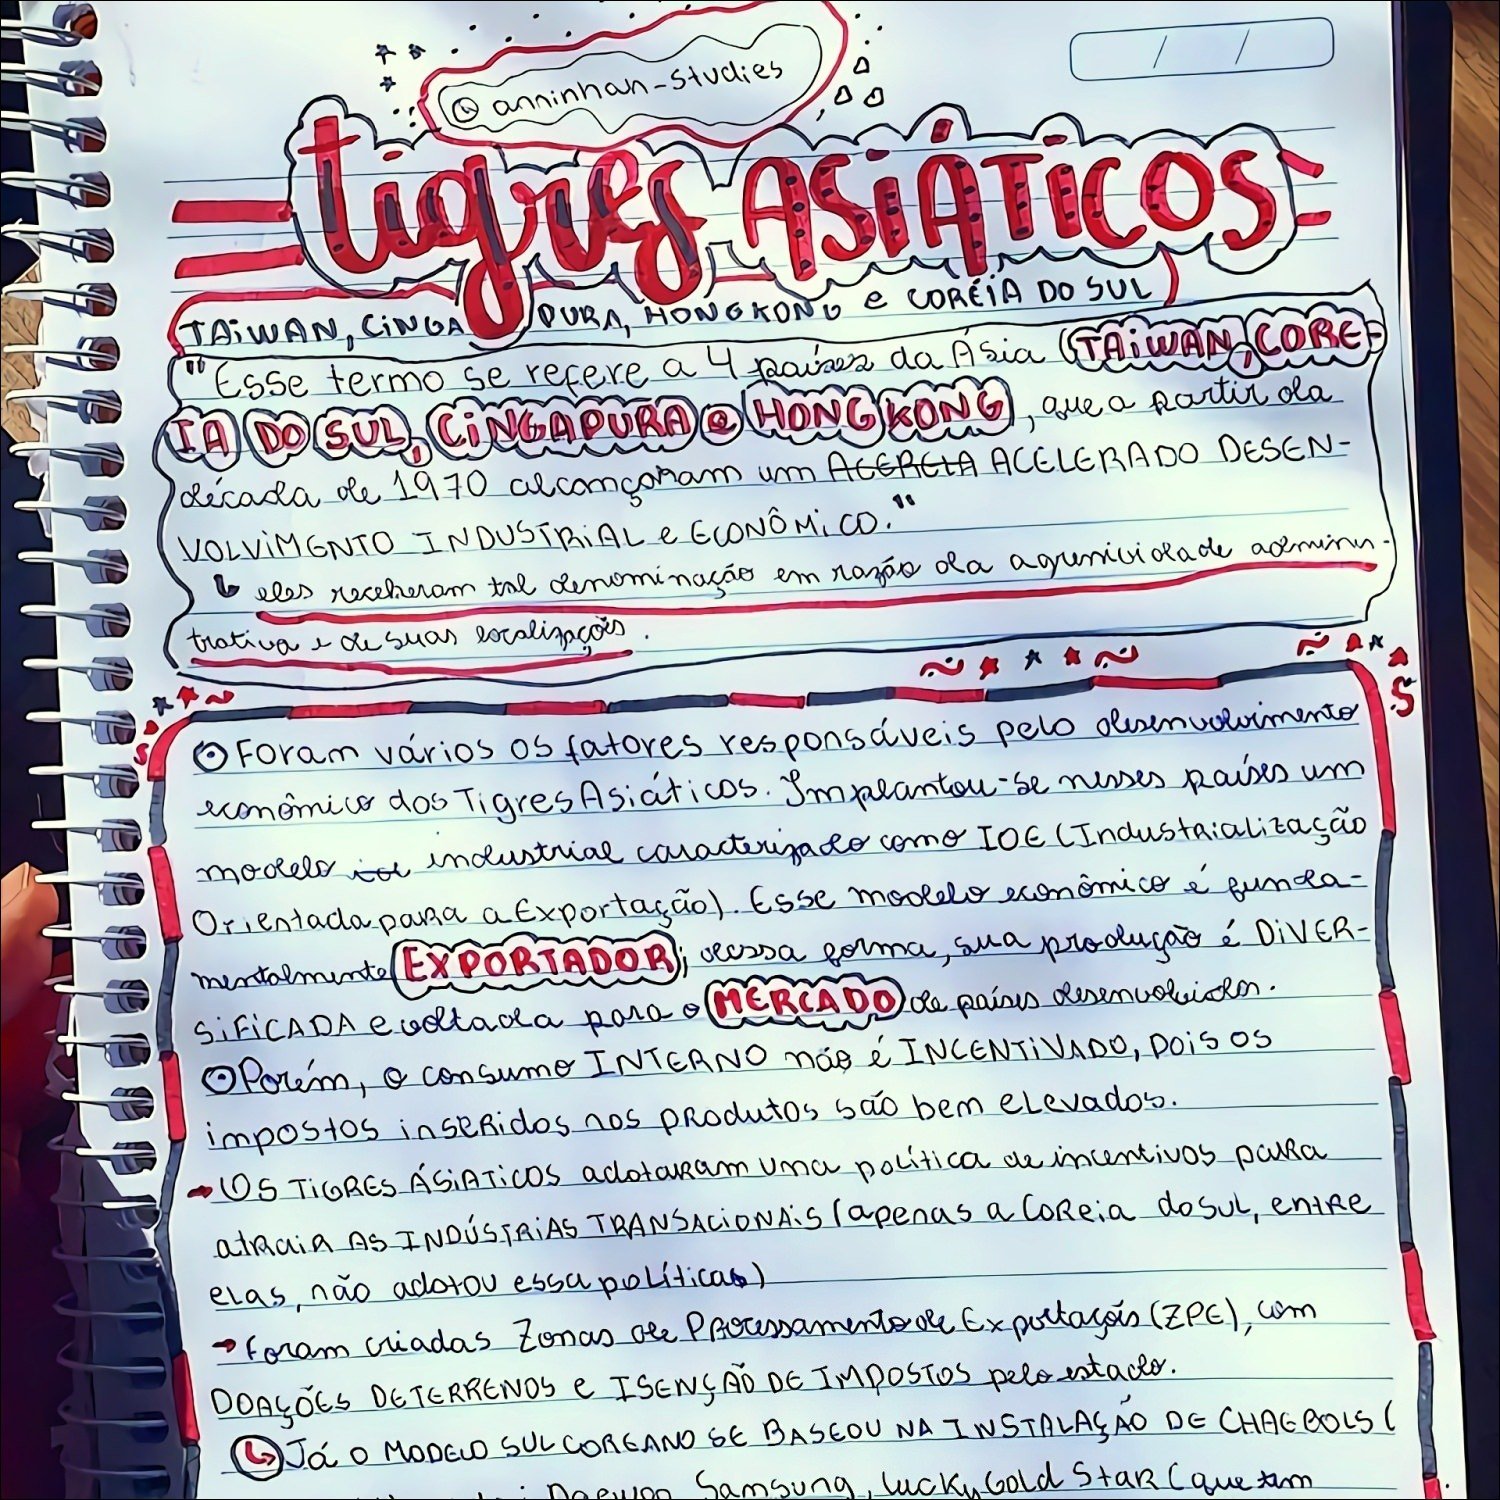 @anninhan-studies
/ /
tigres ASIÁTICOS
TAIWAN, CINGAPURA, HONG KONG e CORÉIA DO SUL
"Esse termo se refere a 4 países da Ásia (TAIWAN, CORE-
IA DO SUL, CINGAPURA e HONG KONG, que a partir da
década de 1970 alcançaram um ACERELA ACELERADO DESEN-
VOLVIMENTO INDUSTRIAL e ECONÔMICO."
↳ eles receberam tal denominação em razão da agressividade adminis-
trativa e de suas localizações.
Foram vários os fatores responsáveis pelo desenvolvimento
econômico dos Tigres Asiáticos. Implantou-se nesses países um
modelo industrial caracterizado como IOE (Industrialização
Orientada para a Exportação). Esse modelo econômico é funda-
mentalmente EXPORTADOR; dessa forma, sua produção é DIVER-
SIFICADA e voltada para o MERCADO de países desenvolvidos.
Porém, o consumo INTERNO não é INCENTIVADO, POIS OS
impostos inseridos nos PRODUTOS são bem elevados.
→ OS TIGRES ÁSIATICOS adotaram uma política de incentivos para
atrair AS INDÚSTRIAS TRANSACIONAIS (apenas a Coreia do Sul, entre
elas, não adotou essa políticas)
→ Foram criadas Zonas de Processamento de Exportação (ZPE), com
DOAÇÕES DE TERRENOS e ISENÇÃO DE IMPOSTOS pelo estado.
↳ Já O MODELO SUL COREANO SE BASEOU NA INSTALAÇÃO DE CHAEBOLS (
Daewoo, Samsung, Lucky Gold Star (que tem